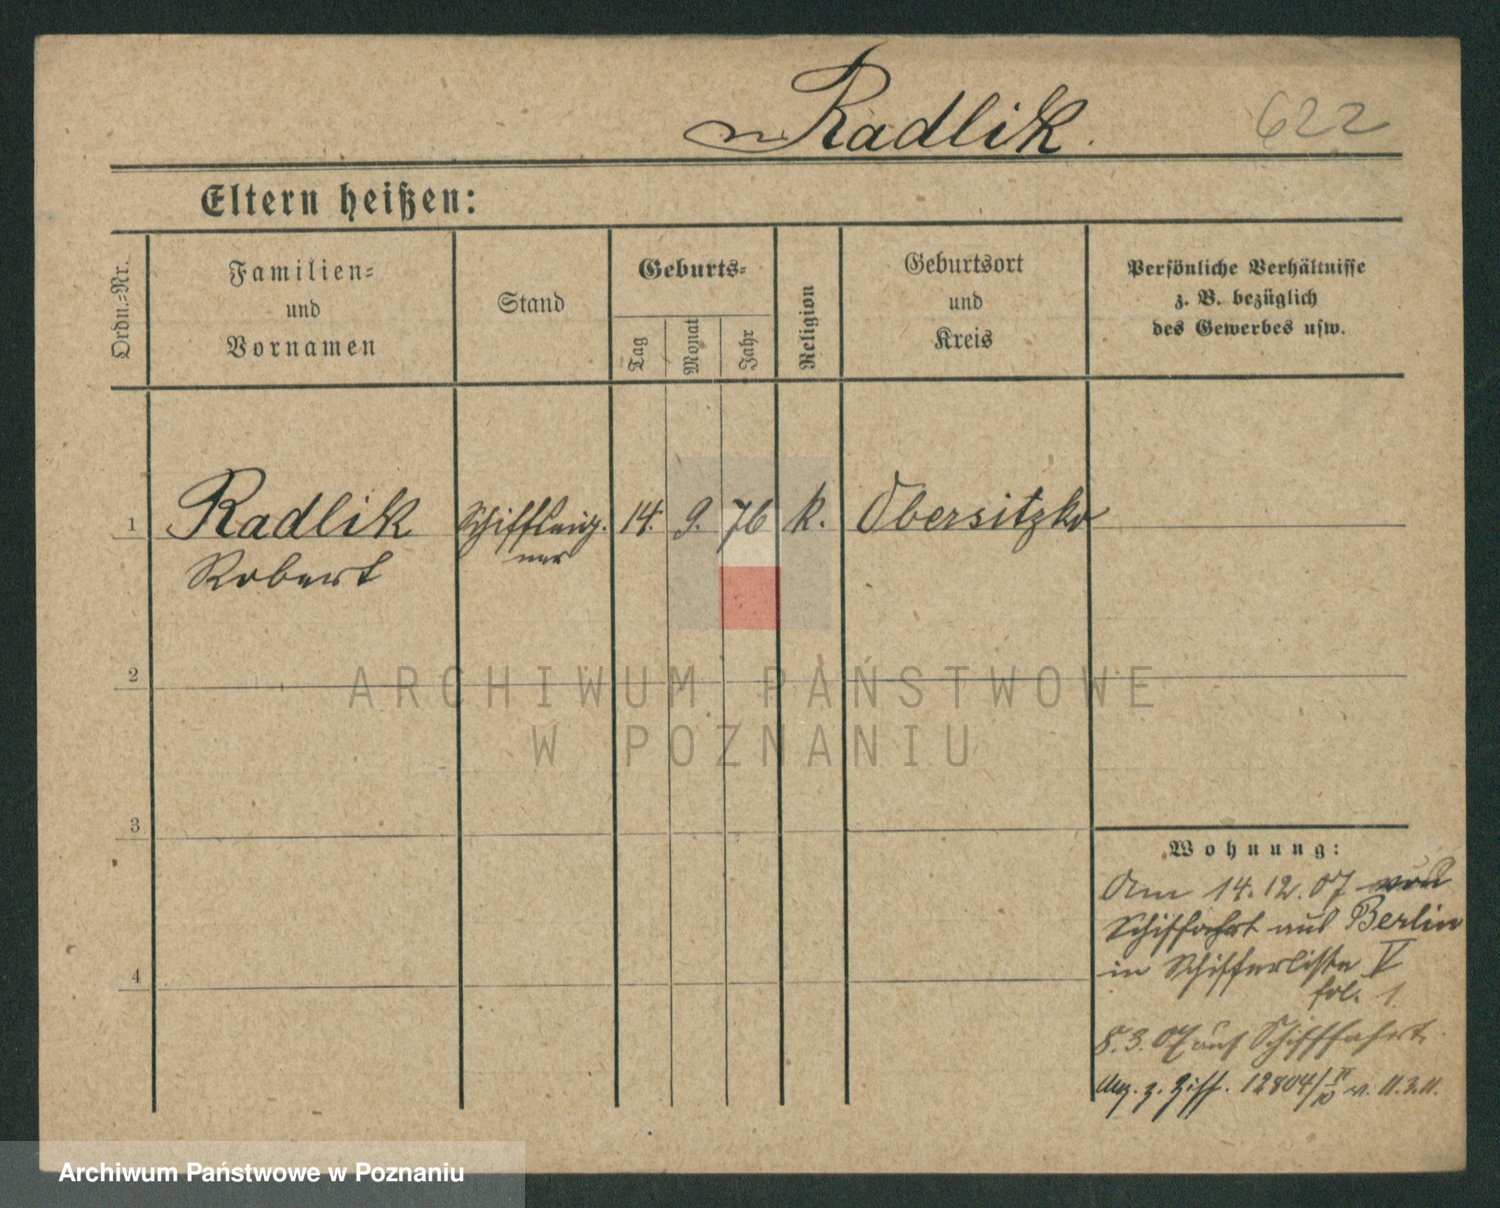 Radlik.
622
Eltern heißen:
Ordn.-Nr.
Familien-
und
Vornamen
Stand
Geburts-
Tag
Monat
Jahr
Religion
Geburtsort
und
Kreis
Persönliche Verhältnisse
z. B. bezüglich
des Gewerbes usw.
1 Radlik Schiffseig. 14. 9. 76 k. Obersitzko
Robert ner
2
ARCHIWUM PAŃSTWOWE
W POZNANIU
3
4
Wohnung:
Am 14.12.07 von
Schiffahrt aus Berlin
in Schifferliste V
fol. 1.
8.3.07 auf Schifffahrt
z. Ziff. 12804/ v. 11.3.11.
Archiwum Państwowe w Poznaniu